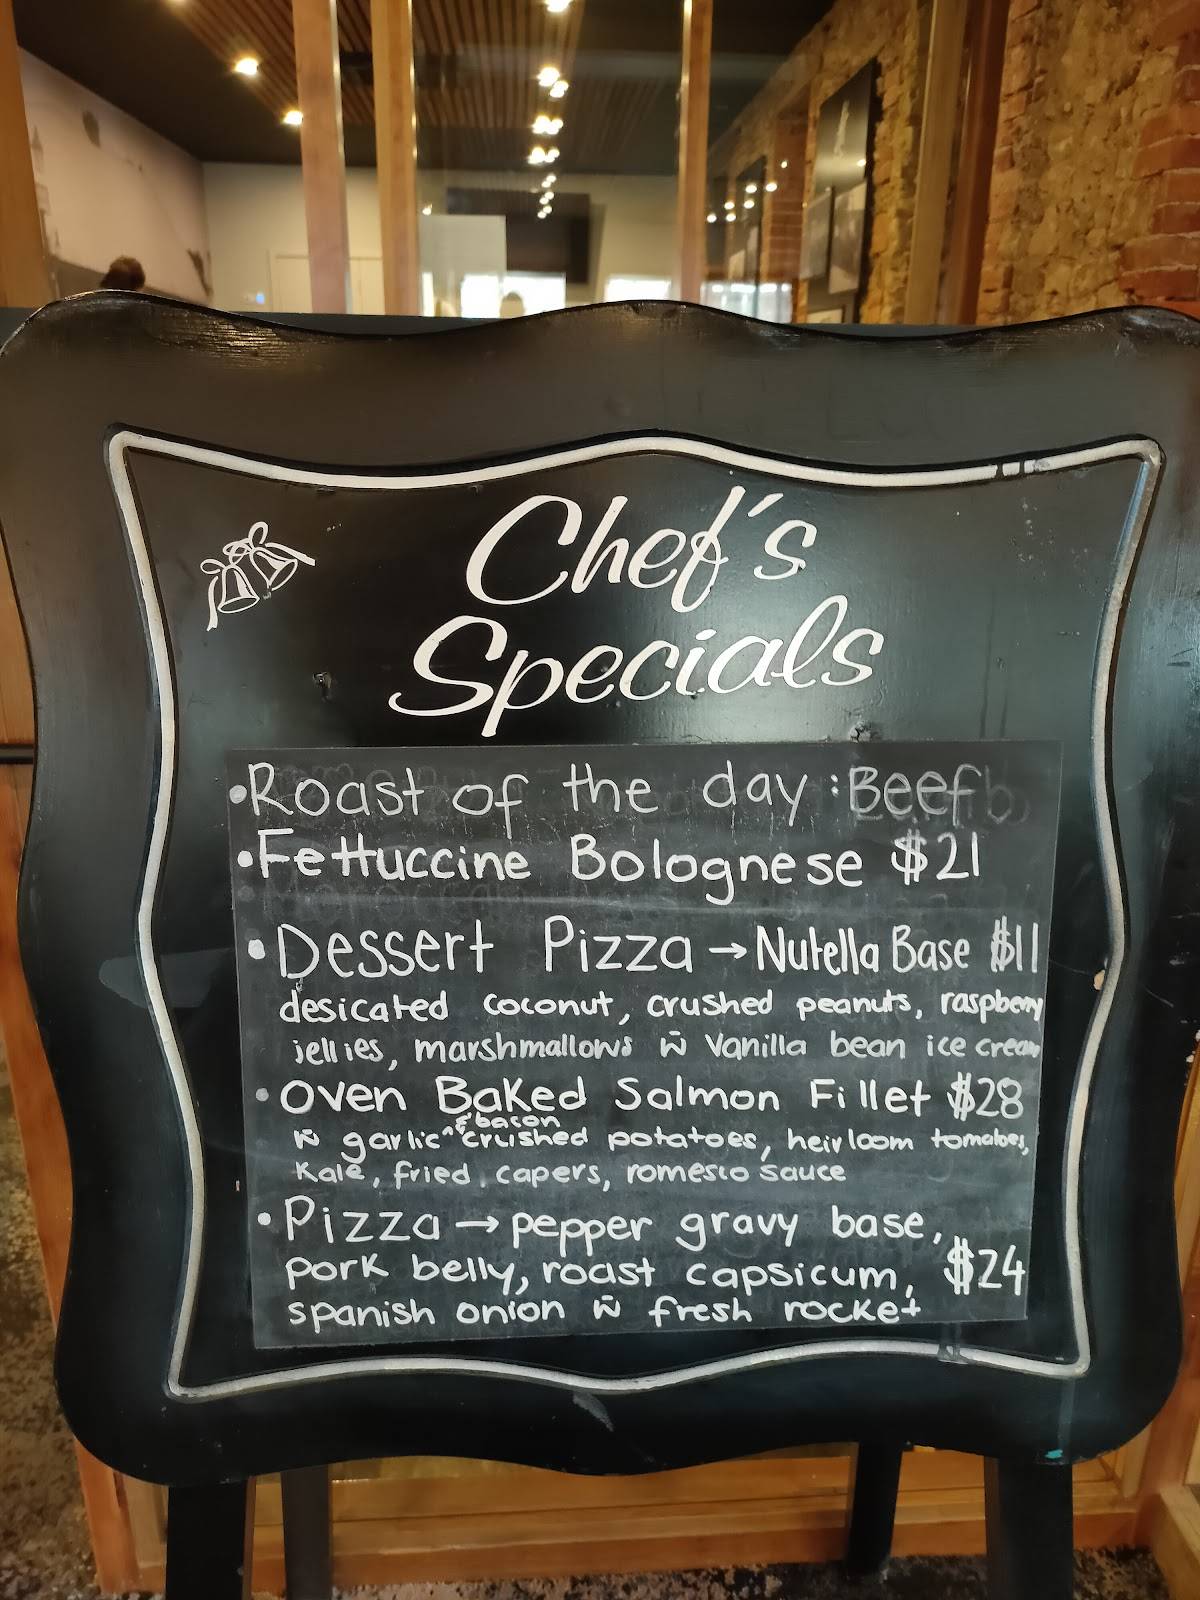 Chef's
Specials
•Roast of the day : Beef
•Fettuccine Bolognese $21
•Dessert Pizza → Nutella Base $11
desicated coconut, crushed peanuts, raspberry
jellies, marshmallows w̄ vanilla bean ice cream
•Oven Baked Salmon Fillet $28
& bacon
w̄ garlic ^ crushed potatoes, heirloom tomatoes,
Kale, fried, capers, romesco sauce
•Pizza → pepper gravy base,
pork belly, roast capsicum, $24
spanish onion w̄ fresh rocket